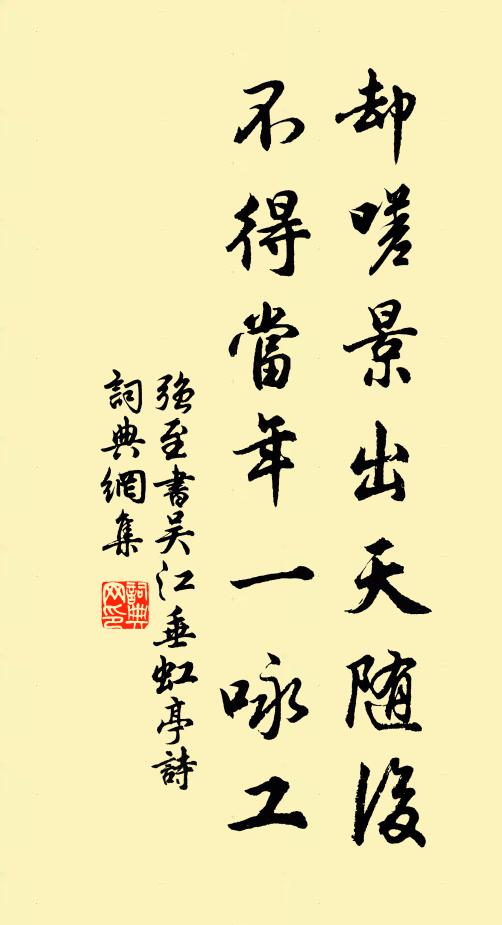 却嗟景出天随後
不得當年一咏工
强至書吴江垂虹亭詩
詞典網集
詞典网印